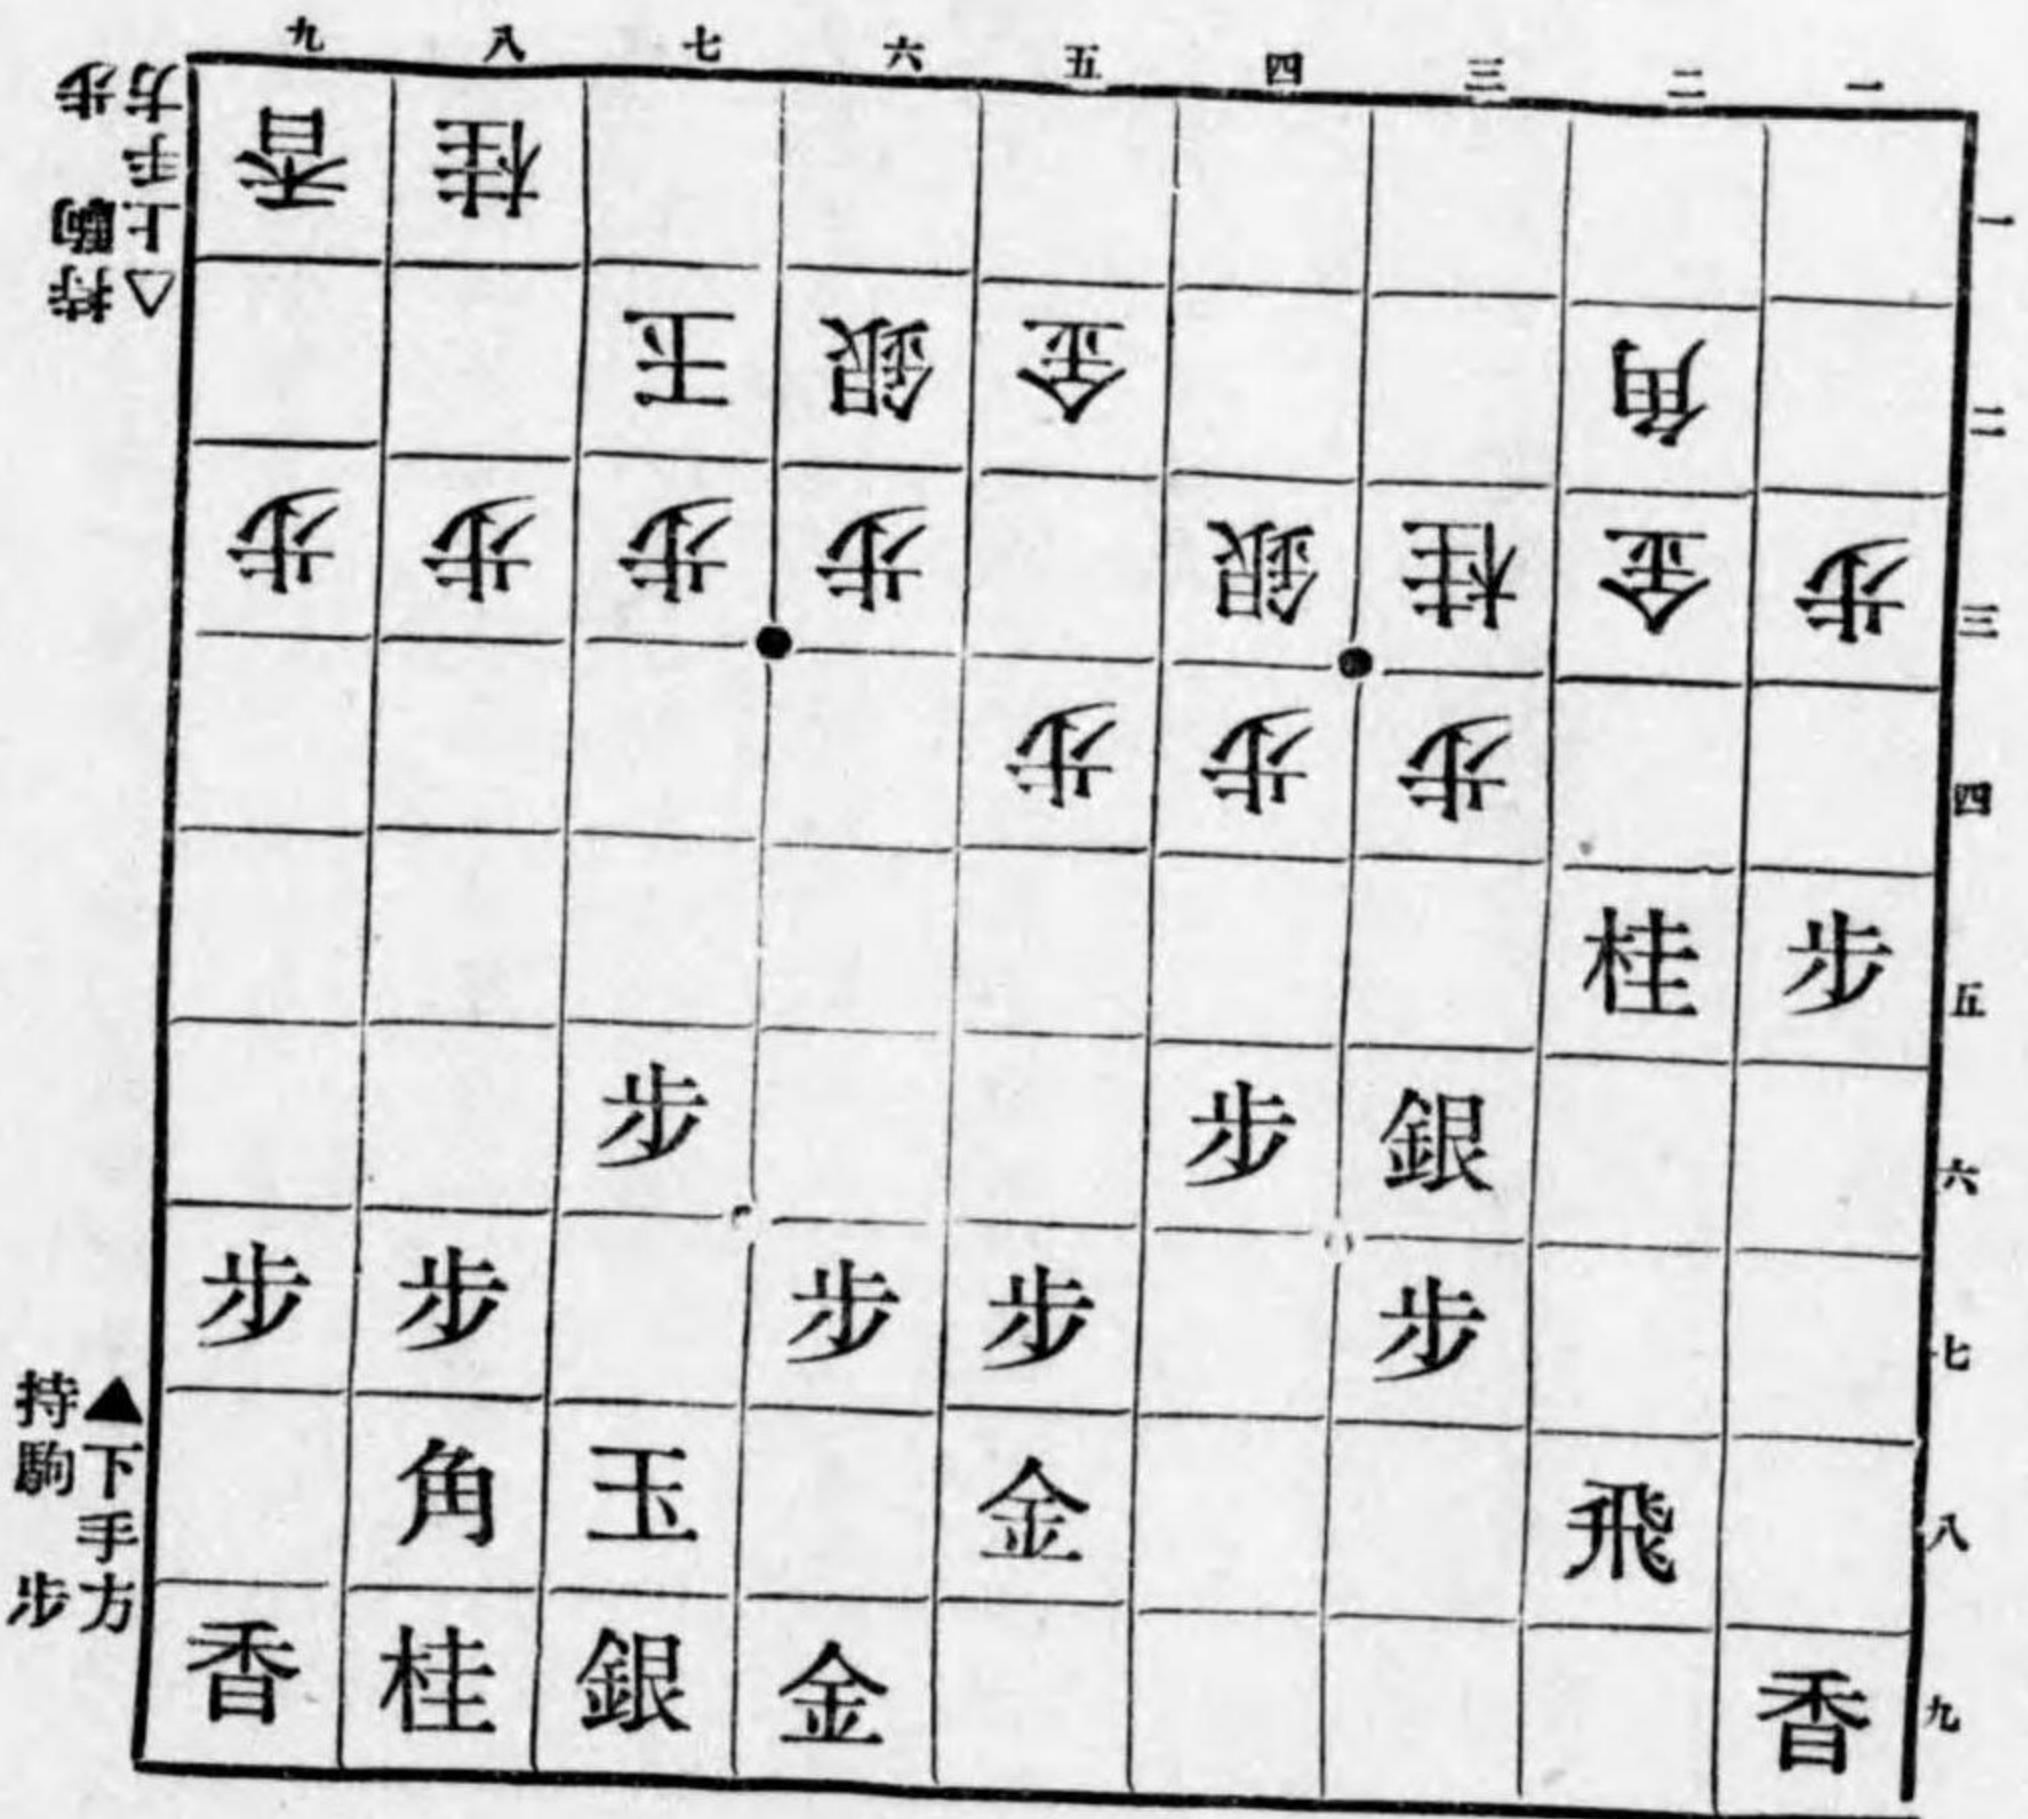 九 八 七 六 五 四 三 二 一
△上手方
持駒 歩
香 桂 一
玉 銀 金 角 二
歩 歩 歩 歩 銀 桂 金 歩 三
歩 歩 歩 四
桂 歩 五
歩 歩 銀 六
歩 歩 歩 歩 歩 七
角 玉 金 飛 八
香 桂 銀 金 香 九
▲下手方
持駒 歩